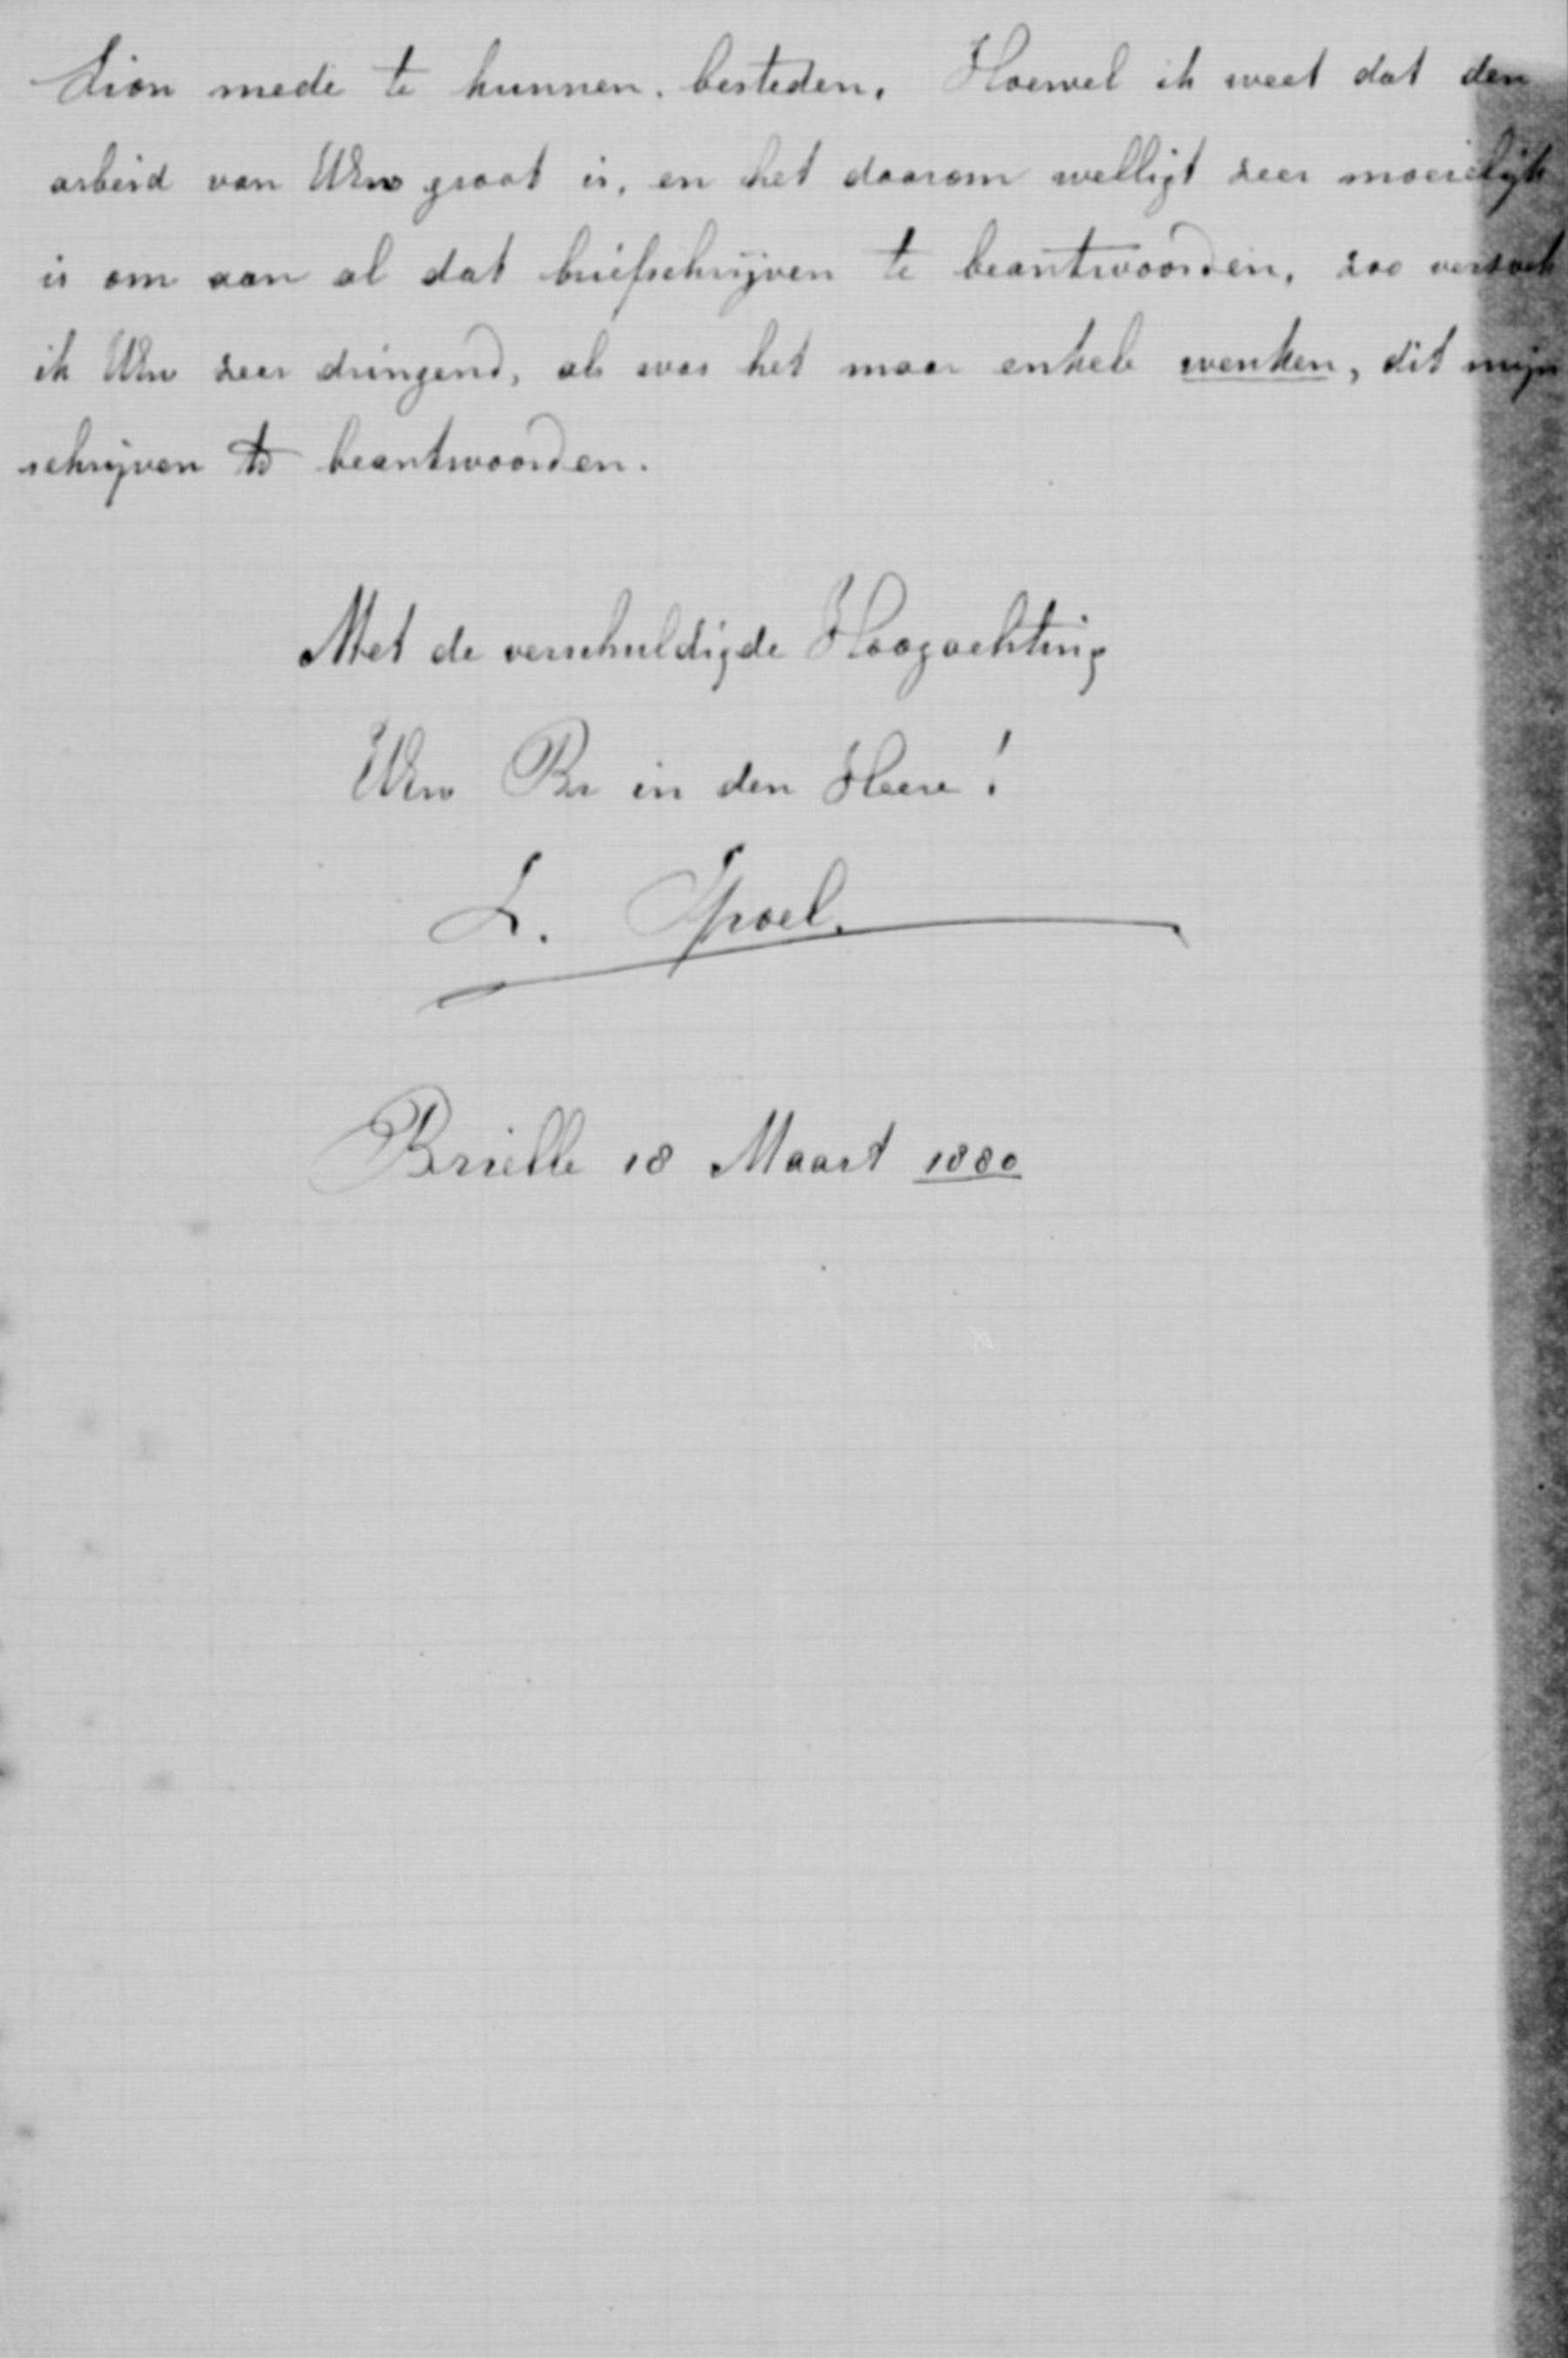 Zion mede te kunnen besteden. Hoewel ik weet dat den
arbeid van UEw groot is, en het daarom welligt zeer moeielijk
is om aan al dat briefschrijven te beantwoorden, zoo verzoek
ik UEw zeer dringend, al was het maar enkele wenken, dit mijn
schrijven te beantwoorden.
Met de verschuldigde Hoogachting
UEw Br in den Heere!
L. Spoel.
Brielle 18 Maart 1880